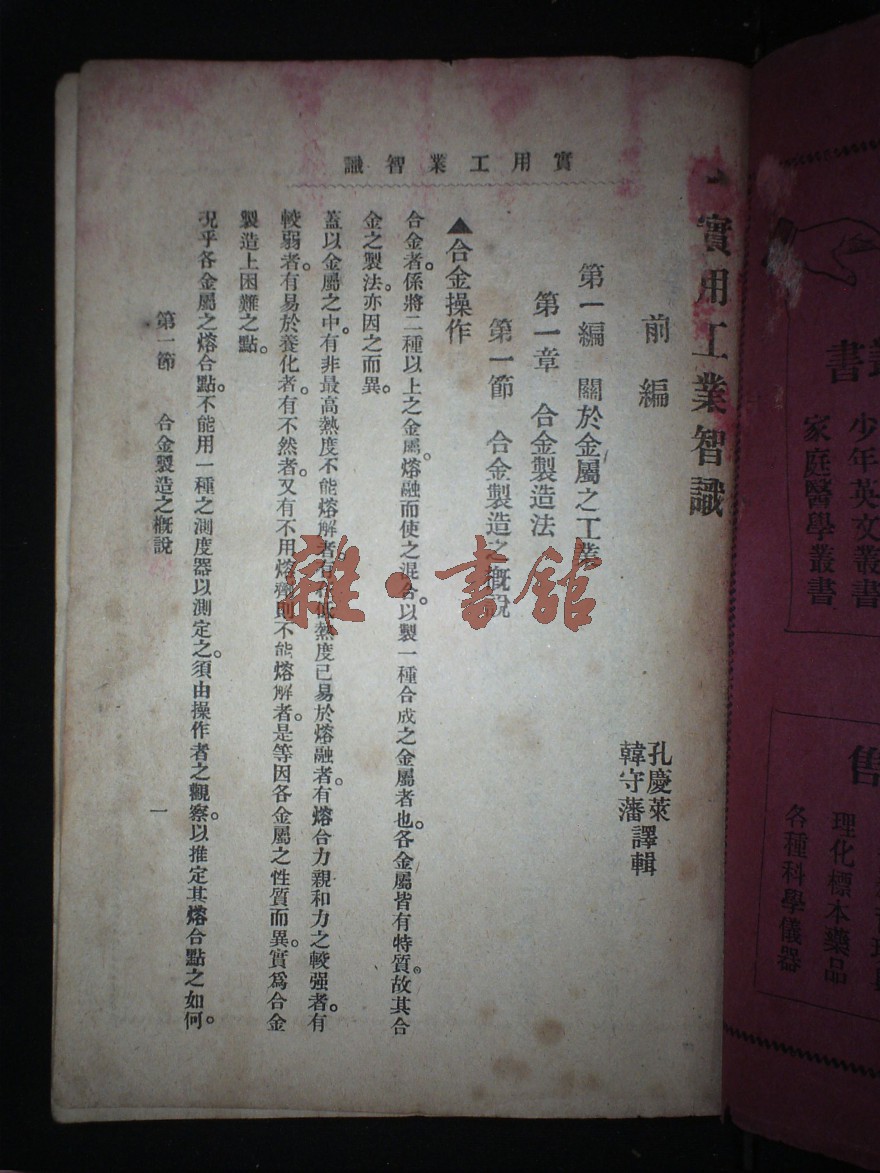 實用工業智識
實用工業智識
前編
孔慶萊
韓守藩 譯輯
第一編 關於金屬之工業
第一章 合金製造法
第一節 合金製造之概說
▲合金操作
合金者。係將二種以上之金屬。熔融而使之混合。以製一種合成之金屬者也。各金屬皆有特質。故其合
金之製法。亦因之而異。
蓋以金屬之中。有非最高熱度不能熔解者。有
低熱度已易於熔融者。有熔合力親和力之較强者。有
較弱者。有易於養化者。有不然者。又有不用熔劑則不能熔解者。是等因各金屬之性質而異。實爲合金
製造上困難之點。
況乎各金屬之熔合點。不能用一種之測度器以測定之。須由操作者之觀察。以推定其熔合點之如何。
第一節 合金製造之概說
一
雜·書館
書
少年英文叢書
家庭醫學叢書
售
理化標本藥品
各種科學儀器